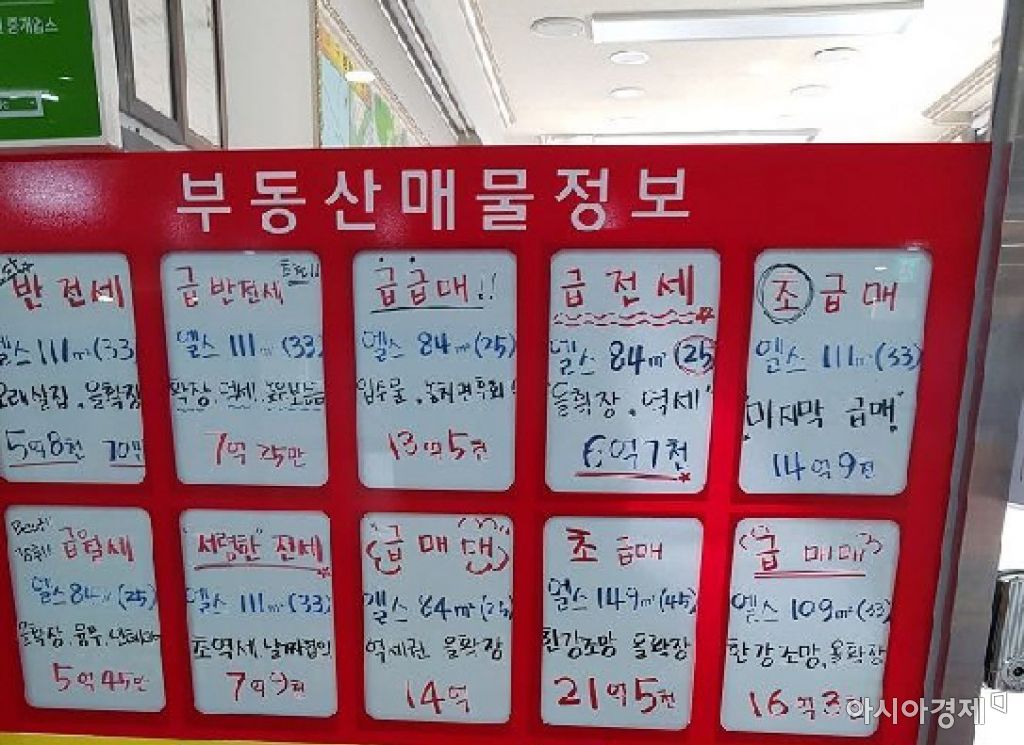 중개업소
부동산매물정보
반전세
엘스 111㎡(33)
올확장
5억8천 70만
급반전세
엘스 111㎡(33)
확장, 역세,
7억 25만
급급매!!
엘스 84㎡(25)
입주물,
13억5천
급전세
엘스 84㎡(25)
"올확장, 역세"
6억7천
초급매
엘스 111㎡(33)
"마지막 급매"
14억9천
급월세
엘스 84㎡(25)
올확장,
5억 45만
"저렴한" 전세
엘스 111㎡(33)
초역세, 날짜협의
7억9천
급매매
엘스 84㎡(25)
역세권 올확장
14억
초급매
엘스 149㎡(45)
한강조망 올확장
21억5천
급매매
엘스 109㎡(33)
한강조망, 올확장
16억3천
아시아경제